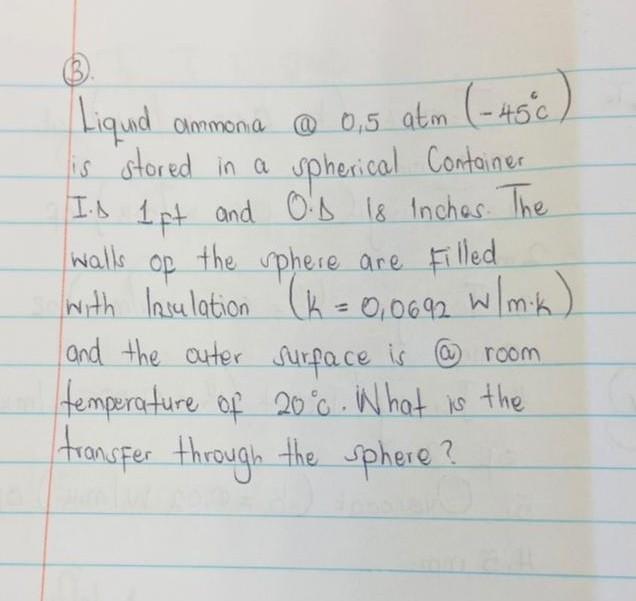 ③.
Liquid ammonia @ 0,5 atm (-45°C)
is stored in a spherical Container
I.D 1ft and O.D 18 Inches. The
walls of the sphere are filled
with Insulation (k = 0,0692 W/m.k)
and the outer surface is @ room
temperature of 20°C. What is the
transfer through the sphere?